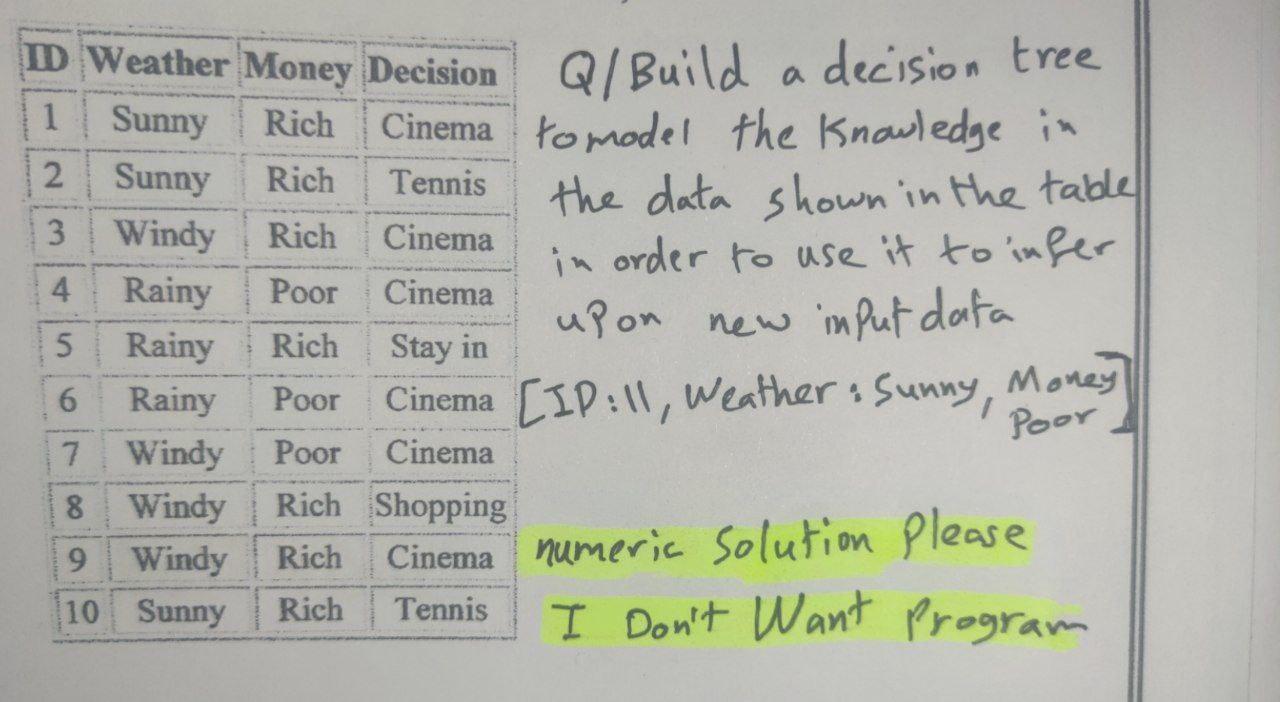 ID Weather Money Decision
1 Sunny Rich Cinema
2 Sunny Rich Tennis
3 Windy Rich Cinema
4 Rainy Poor Cinema
5 Rainy Rich Stay in
6 Rainy Poor Cinema
7 Windy Poor Cinema
8 Windy Rich Shopping
9 Windy Rich Cinema
10 Sunny Rich Tennis
Q/Build a decision tree
to model the Knowledge in
the data shown in the table
in order to use it to infer
upon new input data
[ID:11, Weather: Sunny, Money
Poor]
numeric Solution Please
I Don't Want Program